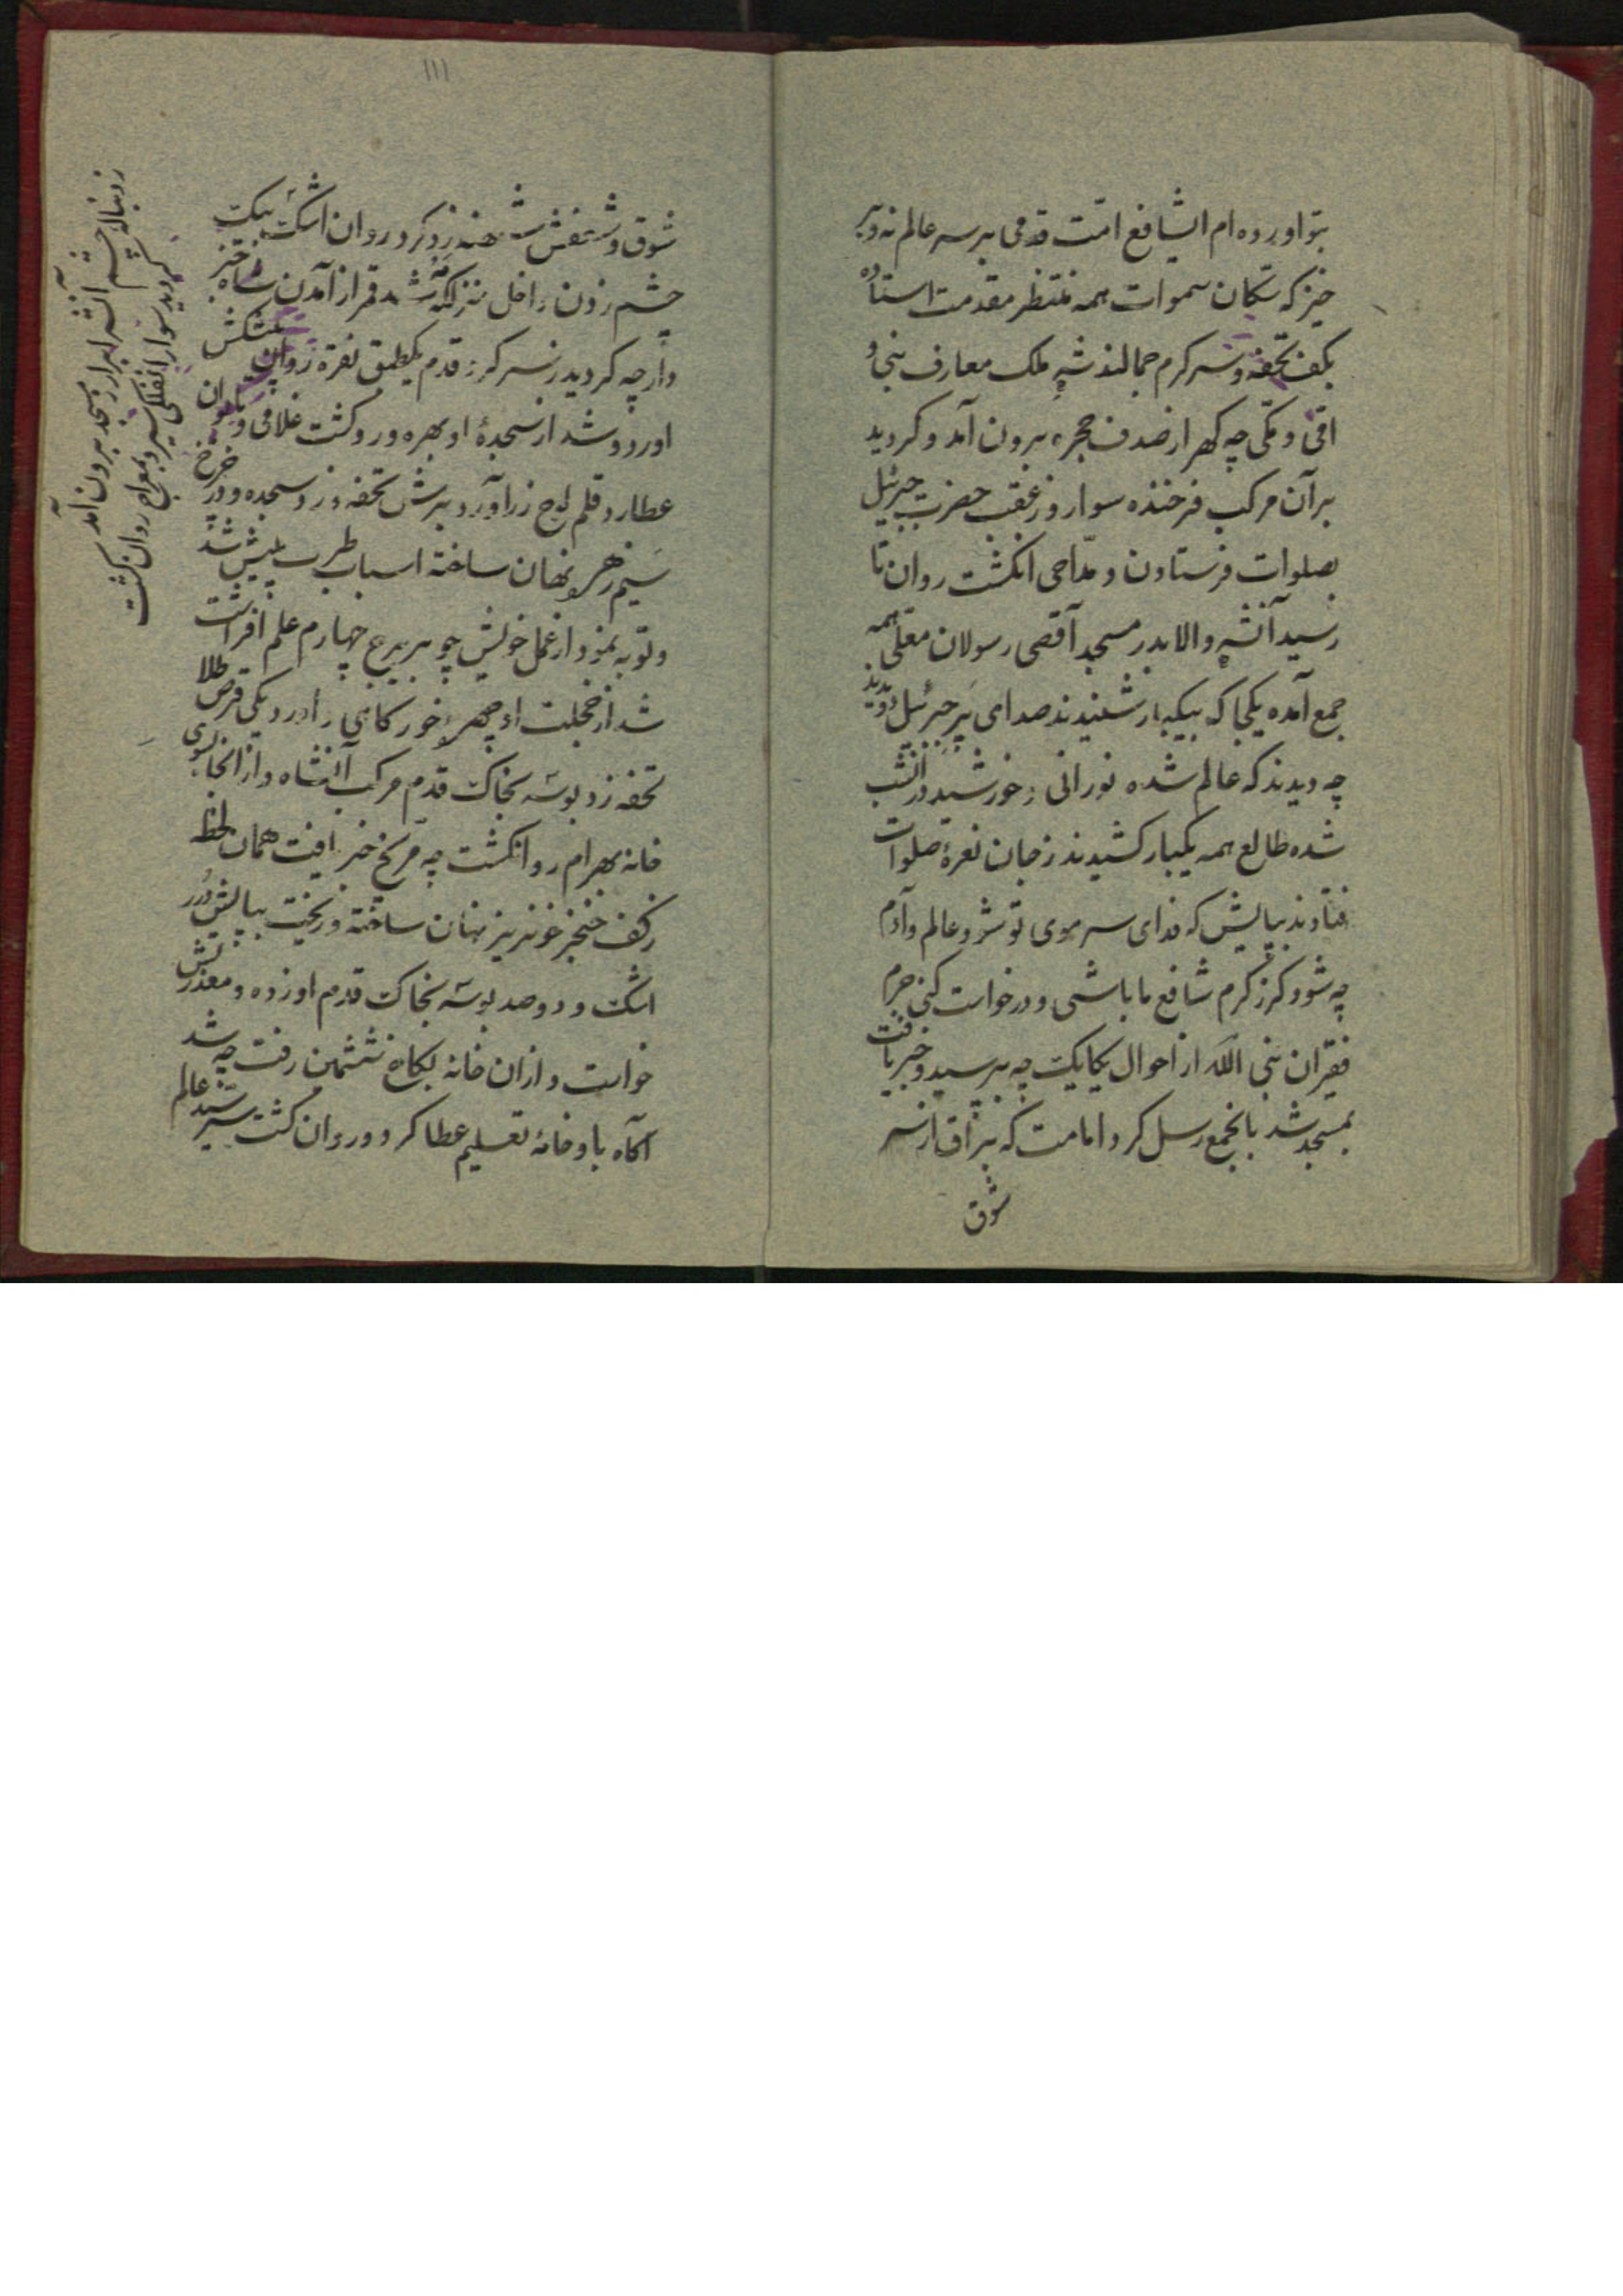 بتو اورده ام الشافع امت قدمی بر سر عالم نه و بر
خیز که سکان سموات همه منتظر مقدمت استاده
بکف تحفه و سر کرم جمالند شه ملک معارف نبی و
امی و مکی چه کهر از صدف حجره برون آمد و کردید
بر آن مرکب فرخنده سوار و ز عقب حضرت جبرئیل
بصلوات فرستادن و مداحی انکشت روان تا
رسید آنشه والا بدر مسجد آقصی رسولان معلی همه
جمع آمده یکجا که بیکبار شنیدند صدای پر جبرئیل دویدند
چه دیدند که عالم شده نورانی ز خورشید در انشب
شده طالع همه یکبار کشیدند ز جان نعرهٔ صلوات
فتادند بپایش که فدای سر موی تو شود عالم و آدم
چه شود کر ز کرم شافع ما باشی و درخواست کنی جرم
فقیران نبی الله از احوال یکایک چه بپرسید و خبر یافت
بمسجد شد با جمع رسل کرد امامت که براق از سر
شوق
۱۱۱
شوق و شعفش شیهه زد و کرد روان اشک بیک
چشم زدن داخل منزلکه مه شد قمر از آمدن شاه خبر
دار چه کردید ز سر کرد قدم یکطبق نقره روان پیشکش
اورد و شد از سجدهٔ او بهره ور و کشت غلامی و بایوان
عطارد قلم لوح زر آورد برش تحفه و زد سجده و در چرخ
سیم زهره نهان ساخته اسباب طرب پیش شد
و توبه نمود از عمل خویش چو بر برج چهارم علم افراشت
شد از خجلت او چهرهٔ خور کاهی و آورد یکی قرص طلا
تحفه زد بوسه بخاک قدم مرکب آنشاه و از انجا بسوی
خانه بهرام روانکشت چه مریخ خبر یافت همان لحظه
ز کف خنجر خونریز نهان ساخته و ریخت بپایش درر
اشک و دو صد بوسه بخاک قدم او زده و معذرتش
خواست و ازان خانه بکاخ ششمین رفت چه شد
آکاه باو خانه تعلیم عطا کرد و روان کشت سید عالم
ز دنباله چشم آنشه ابرار ز مسجد برون آمد
کردید سوار انفلکی سیر و بمعراج روان کشت